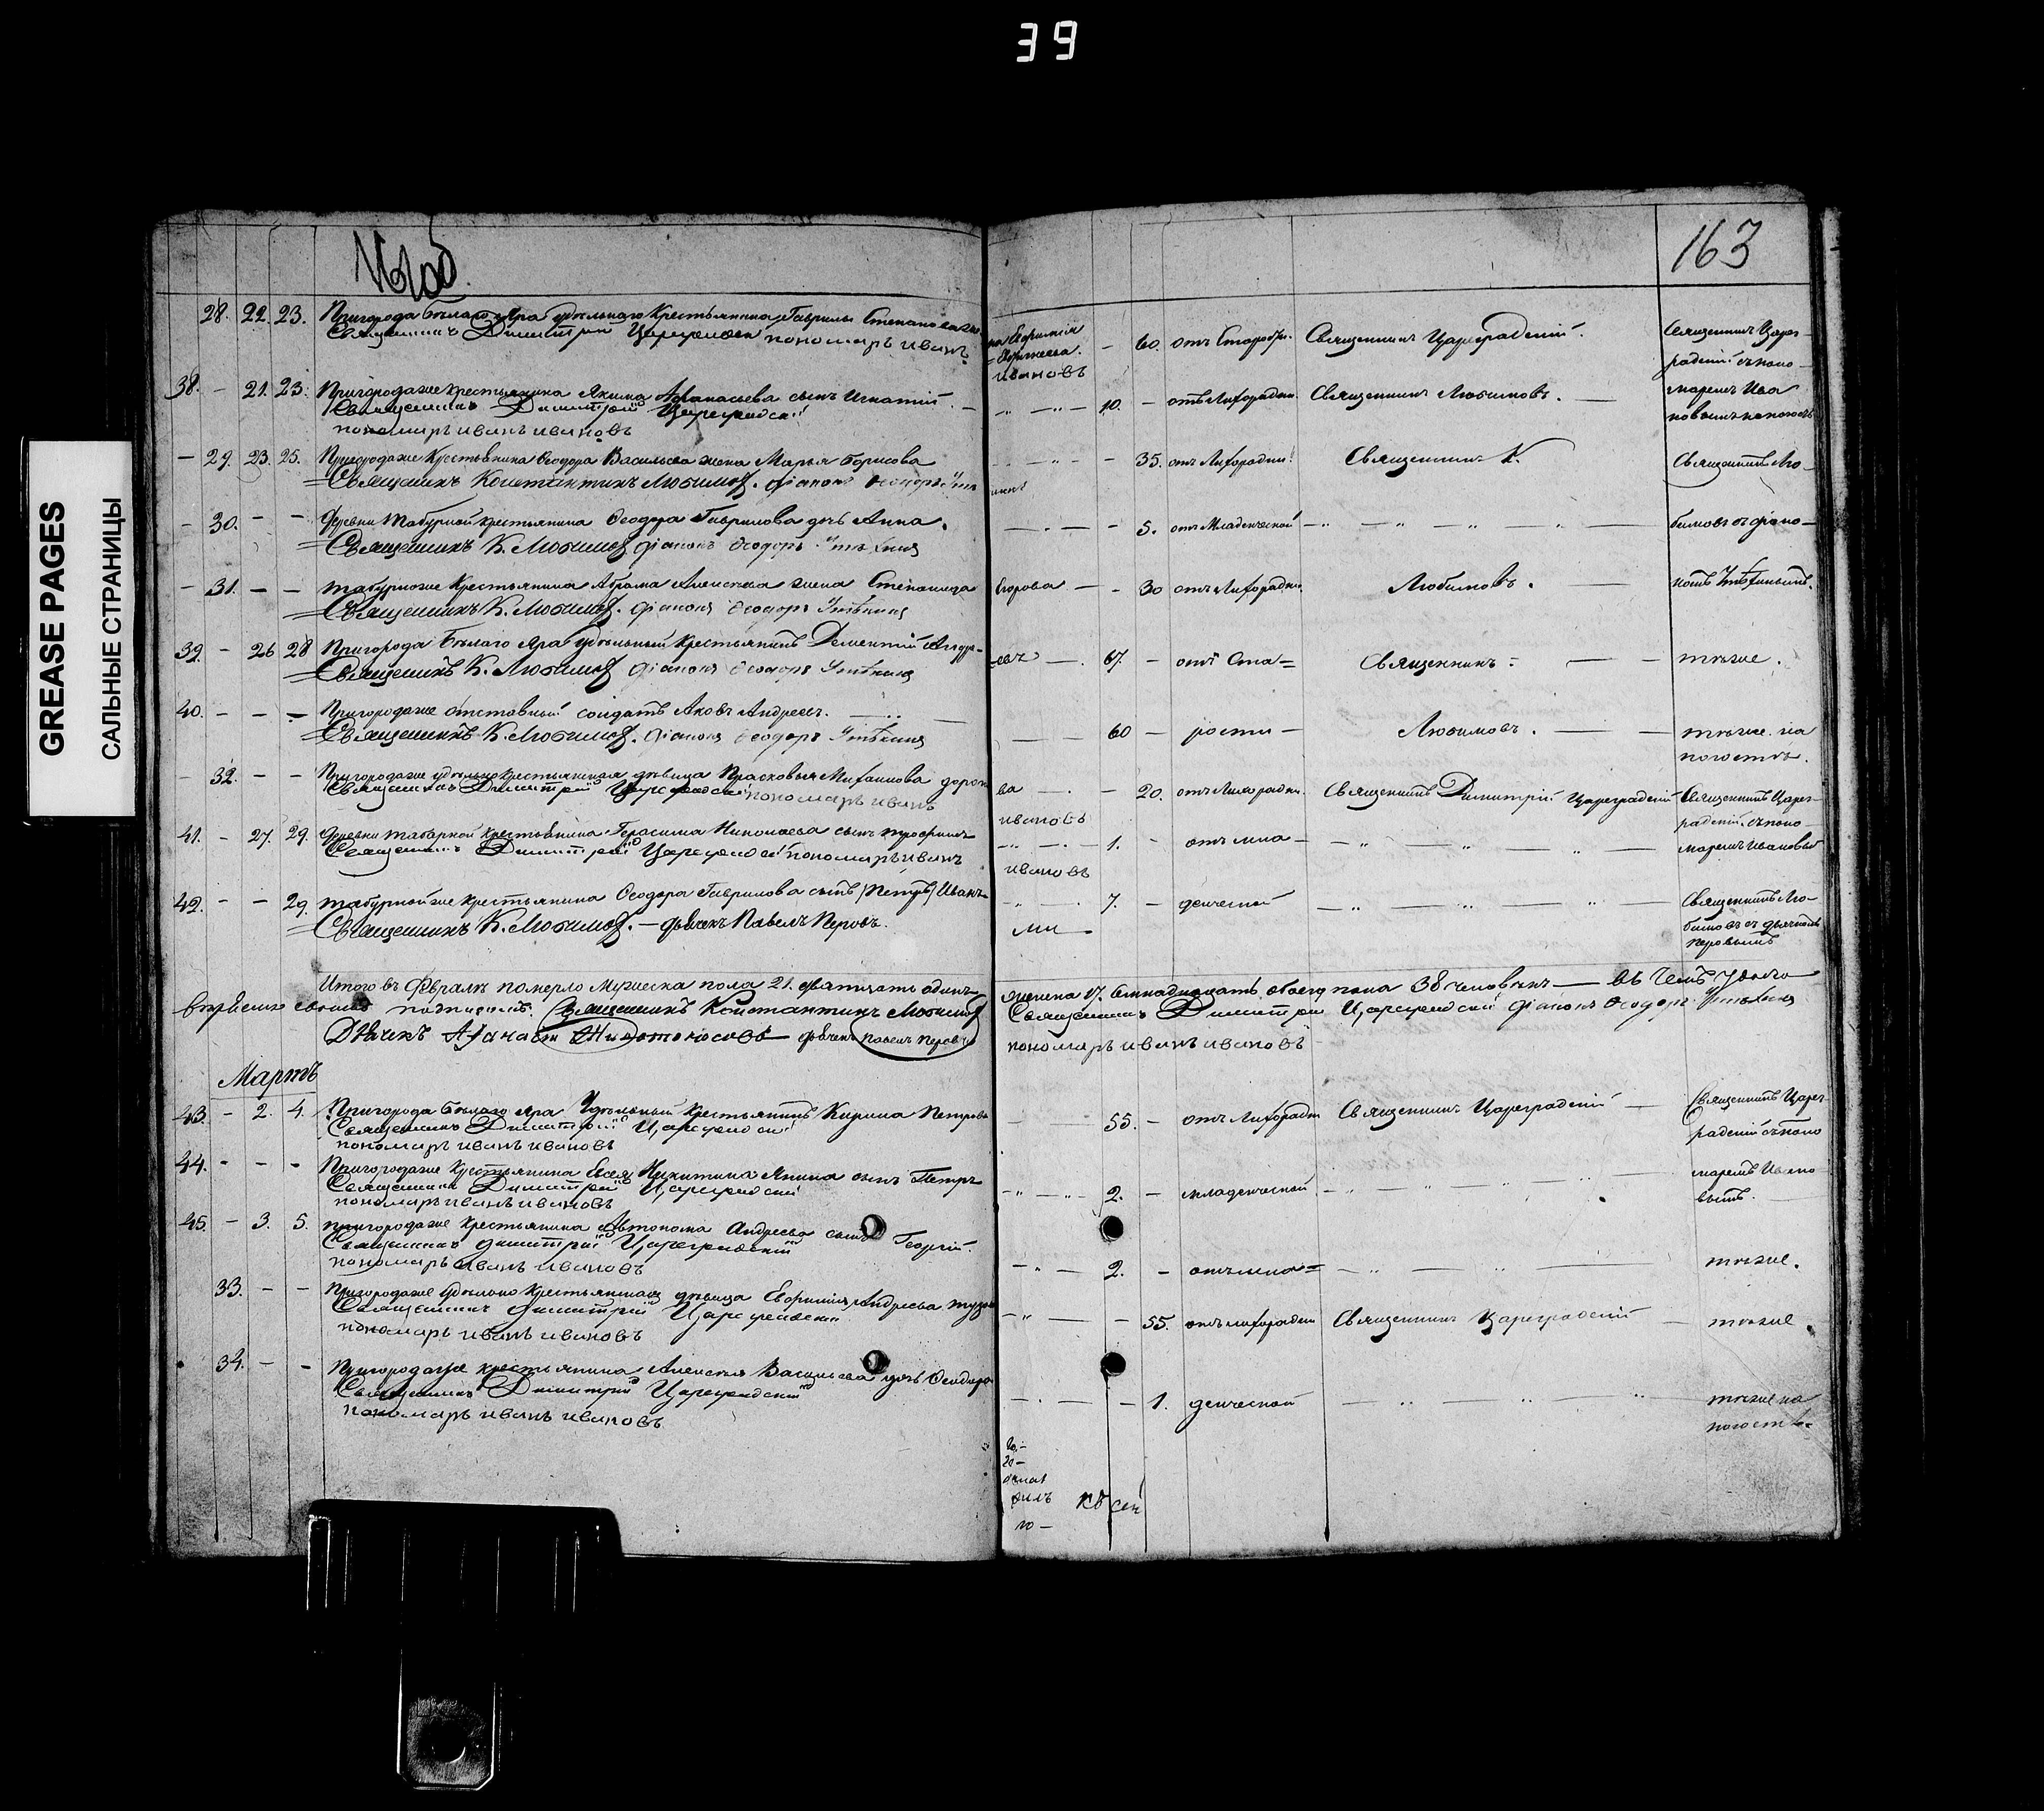 39
GREASE PAGES
САЛЬНЫЕ СТРАНИЦЫ
163
28. 22. 23. Пригорода Бѣлаго Яра удѣльнаго крестьянина Гаврилы
Священникъ Димитрій Цареградскій пономарь иванъ
ивановъ
— 60. отъ Старости. Священникъ Цареградскій. Священникъ Царег-
радскій съ поно-
38. — 21. 23. Пригородаже крестьянина Якима Афанасьева сынъ Игнатій.
Священникъ Димитрій Цареградскій
пономарь иванъ ивановъ
10. — отъ Лихорадки. Священникъ Любимовъ. — маремъ Ива
новымъ на погостѣ
— 29. 23. 25. Пригородаже Крестьянина Ѳеодора Васильева жена Марья Борисова
Священникъ Константинъ Любимовъ. Діаконъ Ѳеодоръ
— 35. отъ Лихорадки. Священникъ К. Священникъ Лю-
— 30. — — Деревни Табурной крестьянина Ѳеодора Гаврилова дочь Анна.
Священникъ К. Любимовъ. Діаконъ Ѳеодоръ
— 5. отъ Младенческой бимовъ съ діако-
— 31. — — Табурнойже Крестьянина Абрама Алексѣева жена Степанида
Священникъ К. Любимовъ. Діаконъ Ѳеодоръ
Егорова — — 30 отъ Лихорадки. Любимовъ. —
39. — 26 28 Пригорода Бѣлаго Яра удѣльный крестьянинъ Дементій Андре-
Священникъ К. Любимовъ. Діаконъ Ѳеодоръ
евъ — 67. — отъ Ста= Священникъ — — тѣже.
40. — — — Пригородаже отставный солдатъ Яковъ Андреевъ.
Священникъ К. Любимовъ. Діаконъ Ѳеодоръ
— — 60 — рости — Любимовъ. — — тѣже. на
погостѣ.
— 32. — — Пригородаже удѣльнокрестьянская дѣвица Прасковья Михаилова
Священникъ Димитрій Цареградскій пономарь иванъ
ва — — 20. отъ Лихорадки. Священникъ Димитрій Цареградскій Священникъ Царег-
ивановъ
радскій съ поно-
41. — 27. 29. Деревни Табурной крестьянина Герасима Николаева сынъ
Священникъ Димитрій Цареградскій пономарь иванъ
1. — отъ мла —
маремъ Ивановымъ
ивановъ
42. — — 29. Табурнойже крестьянина Ѳеодора Гаврилова сынъ (Петръ) Иванъ
Священникъ К. Любимовъ. — дьячекъ Павелъ Перовъ.
7. — денческой Священникъ Лю-
бимовъ съ дьячкомъ
Перовымъ
Итого въ Февралѣ померло Мужеска пола 21. двадцать одинъ
женска 17. семнадцать обоего пола 38 человѣкъ — въ чемъ
подписомъ. Священникъ Константинъ Любимовъ
Священникъ Димитрій Цареградскій Діаконъ Ѳеодоръ
Дьячекъ дьячекъ Павелъ Перовъ
пономарь иванъ ивановъ
Мартъ
43. — 2. 4. Пригорода Бѣлаго Яра Удѣльный Крестьянинъ Кирила Петровъ
Священникъ Димитрій Цареградскій
пономарь иванъ ивановъ
55. — отъ Лихорадки Священникъ Цареградскій — Священникъ Царег-
радскій съ поно
44. — — — Пригородаже крестьянина Никитина сынъ Петръ
Священникъ Димитрій Цареградскій
пономарь иванъ ивановъ
2. — младенческой маремъ Ивано
вымъ.
45. — 3. 5. Пригородаже крестьянина Автонома Андреева сынъ Георгій.
Священникъ Димитрій Цареградскій
пономарь иванъ ивановъ
2. — отъ мла= тѣже.
33. — — Пригородаже удѣльно крестьянская дѣвица Евфимія Андреева
Священникъ Димитрій Цареградскій
пономарь иванъ ивановъ
— 55. отъ лихорадки Священникъ Цареградскій — тѣже.
34. — — Пригородаже крестьянина Алексѣя Васильева дочь Ѳеодора
Священникъ Димитрій Цареградскій
пономарь иванъ ивановъ
— 1. денческой тѣже на
погостѣ.